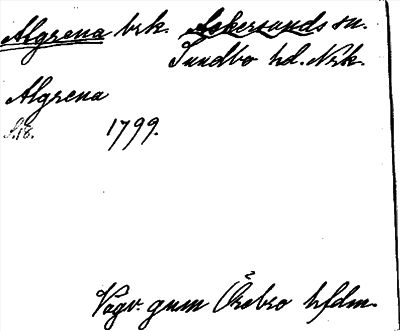 Algrena brk. Askersunds sn.
Sundbo hd. Nrk.
Algrena
1799.
Vägv. gnm Örebro hfdm.